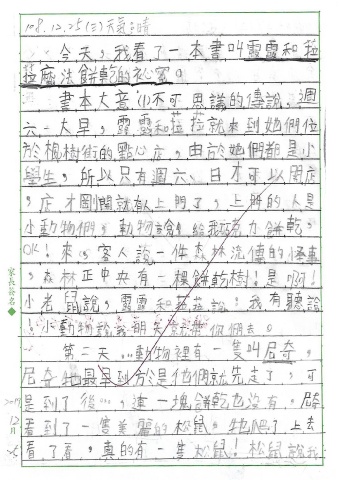 108.12.25(三)天氣:晴
今天,我看了一本書叫露露和菈
菈魔法餅乾的祕密。
書本大意:(1)不可思議的傳說,週
六一大早,露露和菈菈就來到她們位
於楓樹街的點心店,由於她們都是小
學生,所以只有週六、日才可以開店
,店才剛開就有人上門了,上門的人是
小動物們,動物說:給我巧克力餅乾。
OK!來,客人說一件森林流傳的怪事
,森林正中央有一棵餅乾樹!是啊!
小老鼠說,露露和菈菈說:我有聽說
!小動物說我明天就帶你們去。
第二天…動物裡有一隻叫尼奇,
尼奇牠最早到於是他們就先走了,可
是到了後…,連一塊餅乾也沒有。尼奇
看到了一隻美麗的松鼠。牠爬了上去
看了看,真的有一隻松鼠!松鼠說我
家長簽名
12月